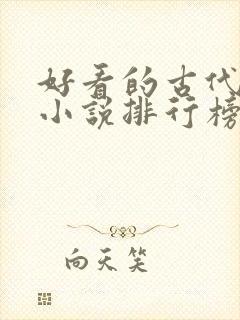 好看的古代
小说排行榜
向天笑